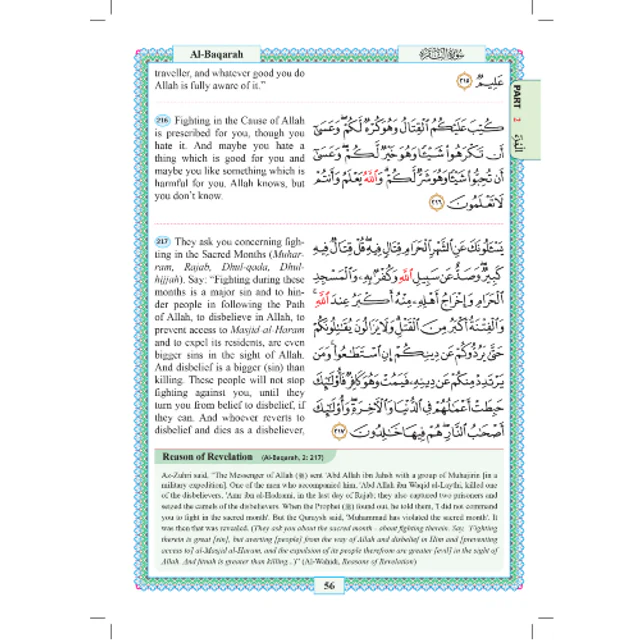 Al-Baqarah
سورة البقرة
PART 2
الجزء
traveller, and whatever good you do
Allah is fully aware of it.”
عَلِيمٌ ٢١٥
216 Fighting in the Cause of Allah
is prescribed for you, though you
hate it. And maybe you hate a
thing which is good for you and
maybe you like something which is
harmful for you. Allah knows, but
you don’t know.
كُتِبَ عَلَيْكُمُ ٱلْقِتَالُ وَهُوَ كُرْهٌ لَّكُمْ وَعَسَىٰٓ
أَن تَكْرَهُوا۟ شَيْـًٔا وَهُوَ خَيْرٌ لَّكُمْ وَعَسَىٰٓ
أَن تُحِبُّوا۟ شَيْـًٔا وَهُوَ شَرٌّ لَّكُمْ وَٱللَّهُ يَعْلَمُ وَأَنتُمْ
لَا تَعْلَمُونَ ٢١٦
217 They ask you concerning figh-
ting in the Sacred Months (Muhar-
ram, Rajab, Dhul-qada, Dhul-
hijjah). Say: “Fighting during these
months is a major sin and to hin-
der people in following the Path
of Allah, to disbelieve in Allah, to
prevent access to Masjid al-Haram
and to expel its residents, are even
bigger sins in the sight of Allah.
And disbelief is a bigger (sin) than
killing. These people will not stop
fighting against you, until they
turn you from belief to disbelief, if
they can. And whoever reverts to
disbelief and dies as a disbeliever,
يَسْـَٔلُونَكَ عَنِ ٱلشَّهْرِ ٱلْحَرَامِ قِتَالٍ فِيهِ قُلْ قِتَالٌ فِيهِ
كَبِيرٌ وَصَدٌّ عَن سَبِيلِ ٱللَّهِ وَكُفْرٌۢ بِهِۦ وَٱلْمَسْجِدِ
ٱلْحَرَامِ وَإِخْرَاجُ أَهْلِهِۦ مِنْهُ أَكْبَرُ عِندَ ٱللَّهِ
وَٱلْفِتْنَةُ أَكْبَرُ مِنَ ٱلْقَتْلِ وَلَا يَزَالُونَ يُقَٰتِلُونَكُمْ
حَتَّىٰ يَرُدُّوكُمْ عَن دِينِكُمْ إِنِ ٱسْتَطَٰعُوا۟ وَمَن
يَرْتَدِدْ مِنكُمْ عَن دِينِهِۦ فَيَمُتْ وَهُوَ كَافِرٌ فَأُو۟لَٰٓئِكَ
حَبِطَتْ أَعْمَٰلُهُمْ فِى ٱلدُّنْيَا وَٱلْـَٔاخِرَةِ وَأُو۟لَٰٓئِكَ
أَصْحَٰبُ ٱلنَّارِ هُمْ فِيهَا خَٰلِدُونَ ٢١٧
Reason of Revelation (Al-Baqarah, 2: 217)
Az-Zuhri said, “The Messenger of Allah (ﷺ) sent ‘Abd Allah ibn Jahsh with a group of Muhajirin [in a
military expedition]. One of the men who accompanied him, ‘Abd Allah ibn Waqid al-Laythi, killed one
of the disbelievers, ‘Amr ibn al-Hadrami, in the last day of Rajab; they also captured two prisoners and
seized the camels of the disbelievers. When the Prophet (ﷺ) found out, he told them, ‘I did not command
you to fight in the sacred month’. But the Quraysh said, ‘Muhammad has violated the sacred month’. It
was then that was revealed, (They ask you about the sacred month - about fighting therein. Say, ‘Fighting
therein is great [sin], but averting [people] from the way of Allah and disbelief in Him and [preventing
access to] al-Masjid al-Haram, and the expulsion of its people therefrom are greater [evil] in the sight of
Allah. And fitnah is greater than killing...)” (Al-Wahidi, Reasons of Revelation)
56